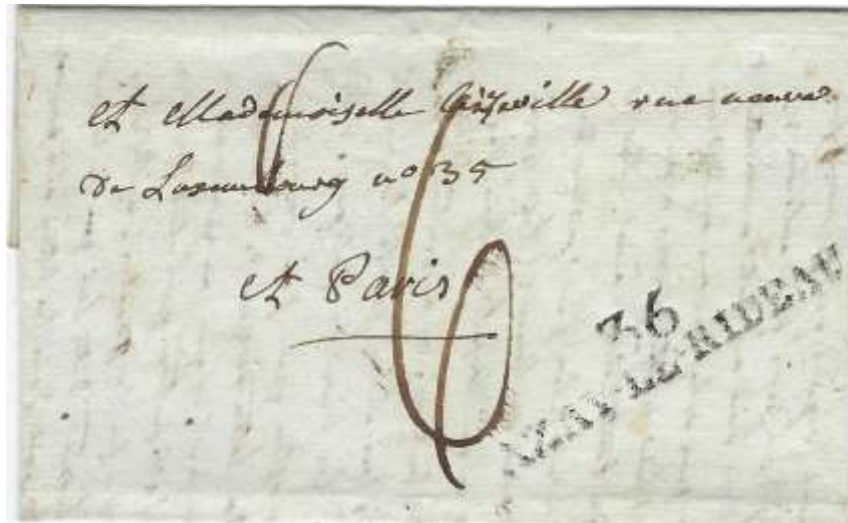 A Mademoiselle rue neuve
De Luxembourg n° 35
A Paris
6
36
AZAY-LE-RIDEAU